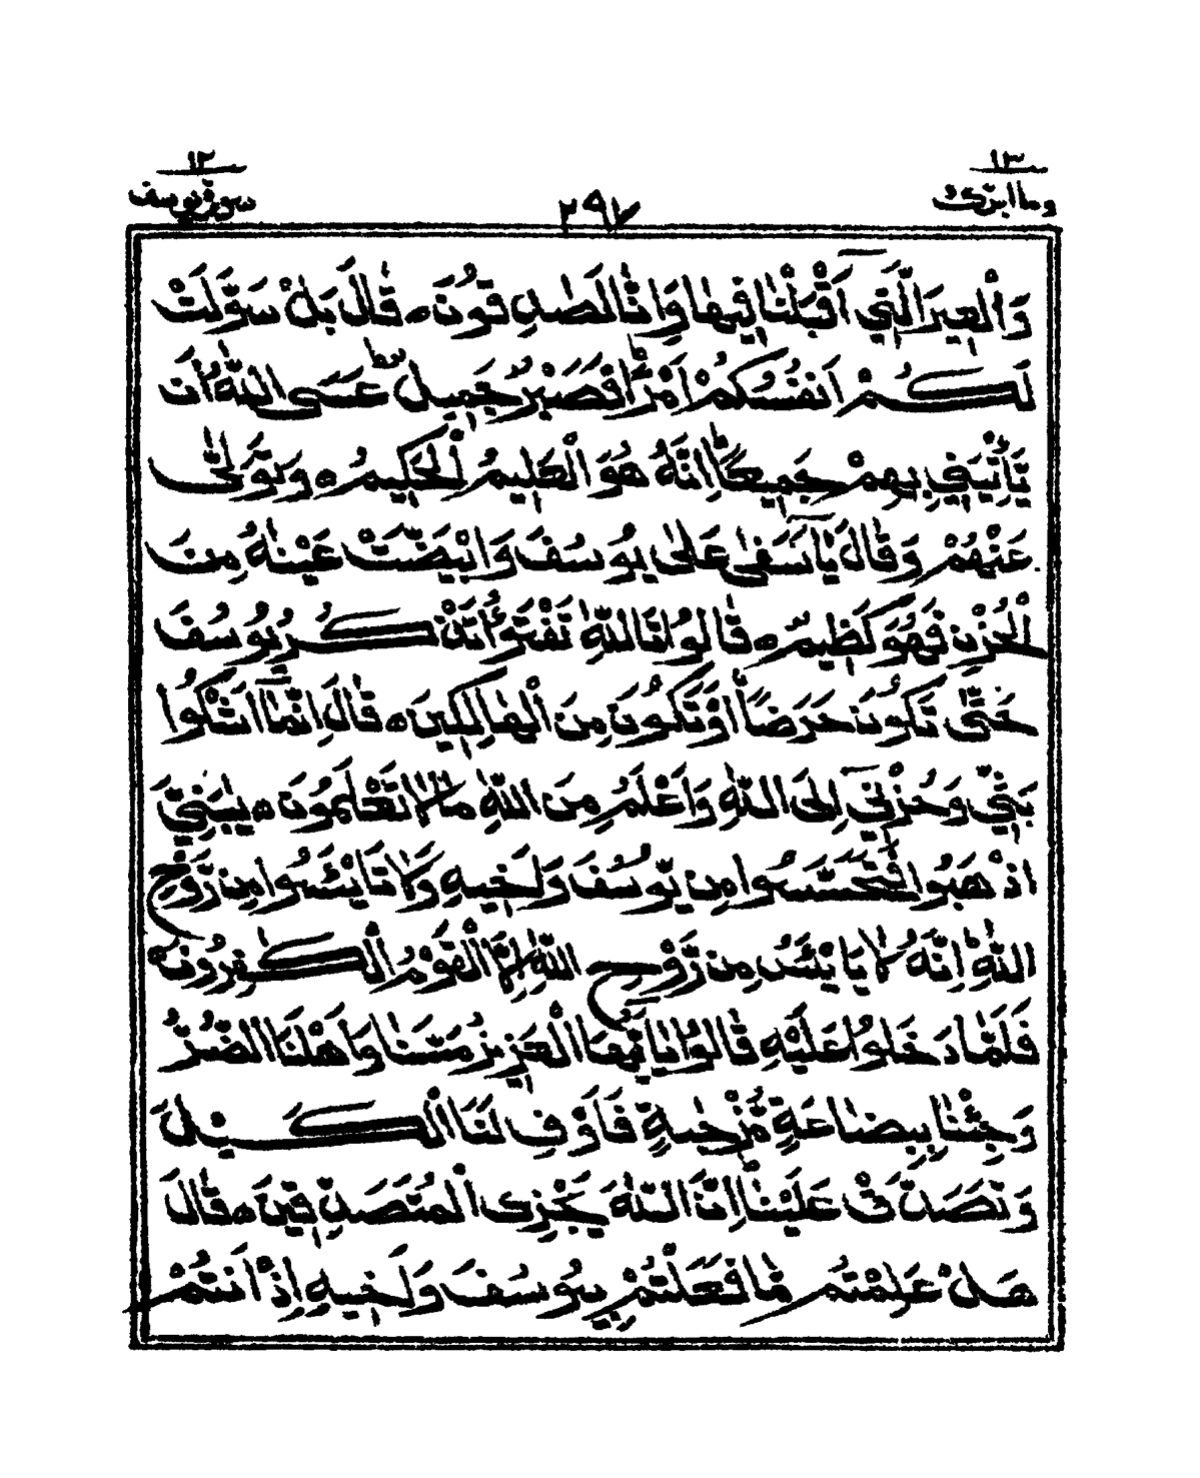 وما ابرئ ١٣
٢٩٧
سورة يوسف ١٢
وَالْعِيرَ الَّتِيٓ اَقْبَلْنَا فِيهَا وَاِنَّا لَصٰدِقُونَ ه قَالَ بَلْ سَوَّلَتْ
لَكُمْ اَنفُسُكُمْ اَمْرًاؕ فَصَبْرٌ جَمِيلٌؕ عَسَى اللّٰهُ اَن
يَّأْتِيَنِي بِهِمْ جَمِيعًاؕ اِنَّهُ هُوَ الْعَلِيمُ الْحَكِيمُ ه وَتَوَلّٰى
عَنْهُمْ وَقَالَ يٰٓاَسَفٰى عَلٰى يُوسُفَ وَابْيَضَّتْ عَيْنٰهُ مِنَ
الْحُزْنِ فَهُوَ كَظِيمٌ ه قَالُوا تَاللّٰهِ تَفْتَؤُا تَذْكُرُ يُوسُفَ
حَتّٰى تَكُونَ حَرَضًا اَوْ تَكُونَ مِنَ الْهَالِكِينَ ه قَالَ اِنَّمَآ اَشْكُوا
بَثِّي وَحُزْنِيٓ اِلَى اللّٰهِ وَاَعْلَمُ مِنَ اللّٰهِ مَا لَا تَعْلَمُونَ ه يٰبَنِيَّ
اذْهَبُوا فَتَحَسَّسُوا مِن يُّوسُفَ وَاَخِيهِ وَلَا تَايْئَسُوا مِن رَّوْحِ
اللّٰهِؕ اِنَّهُ لَا يَايْئَسُ مِن رَّوْحِ اللّٰهِ اِلَّا الْقَوْمُ الْكٰفِرُونَ ه
فَلَمَّا دَخَلُوا عَلَيْهِ قَالُوا يٰٓاَيُّهَا الْعَزِيزُ مَسَّنَا وَاَهْلَنَا الضُّرُّ
وَجِئْنَا بِبِضَاعَةٍ مُّزْجٰىةٍ فَاَوْفِ لَنَا الْكَيْلَ
وَتَصَدَّقْ عَلَيْنَاؕ اِنَّ اللّٰهَ يَجْزِى الْمُتَصَدِّقِينَ ه قَالَ
هَلْ عَلِمْتُم مَّا فَعَلْتُمْ بِيُوسُفَ وَاَخِيهِ اِذْ اَنتُمْ